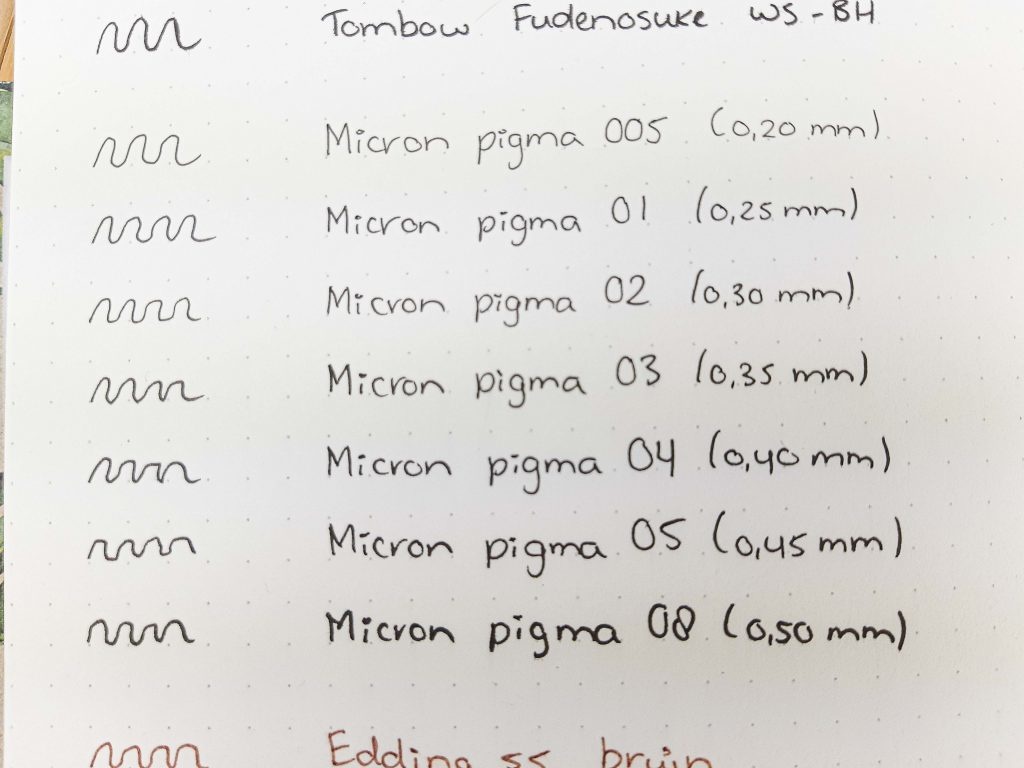 Tombow Fudenosuke WS-BH
Micron pigma 005 (0,20 mm)
Micron pigma 01 (0,25 mm)
Micron pigma 02 (0,30 mm)
Micron pigma 03 (0,35 mm)
Micron pigma 04 (0,40 mm)
Micron pigma 05 (0,45 mm)
Micron pigma 08 (0,50 mm)
Edding 55 bruin